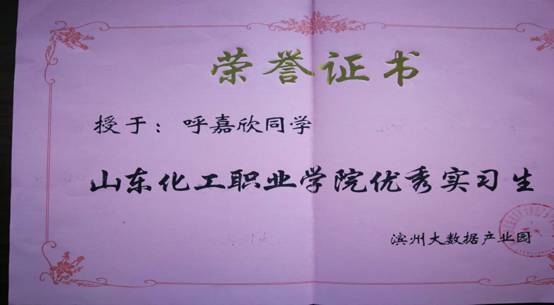 荣誉证书
授于：呼嘉欣同学
山东化工职业学院优秀实习生
滨州大数据产业园